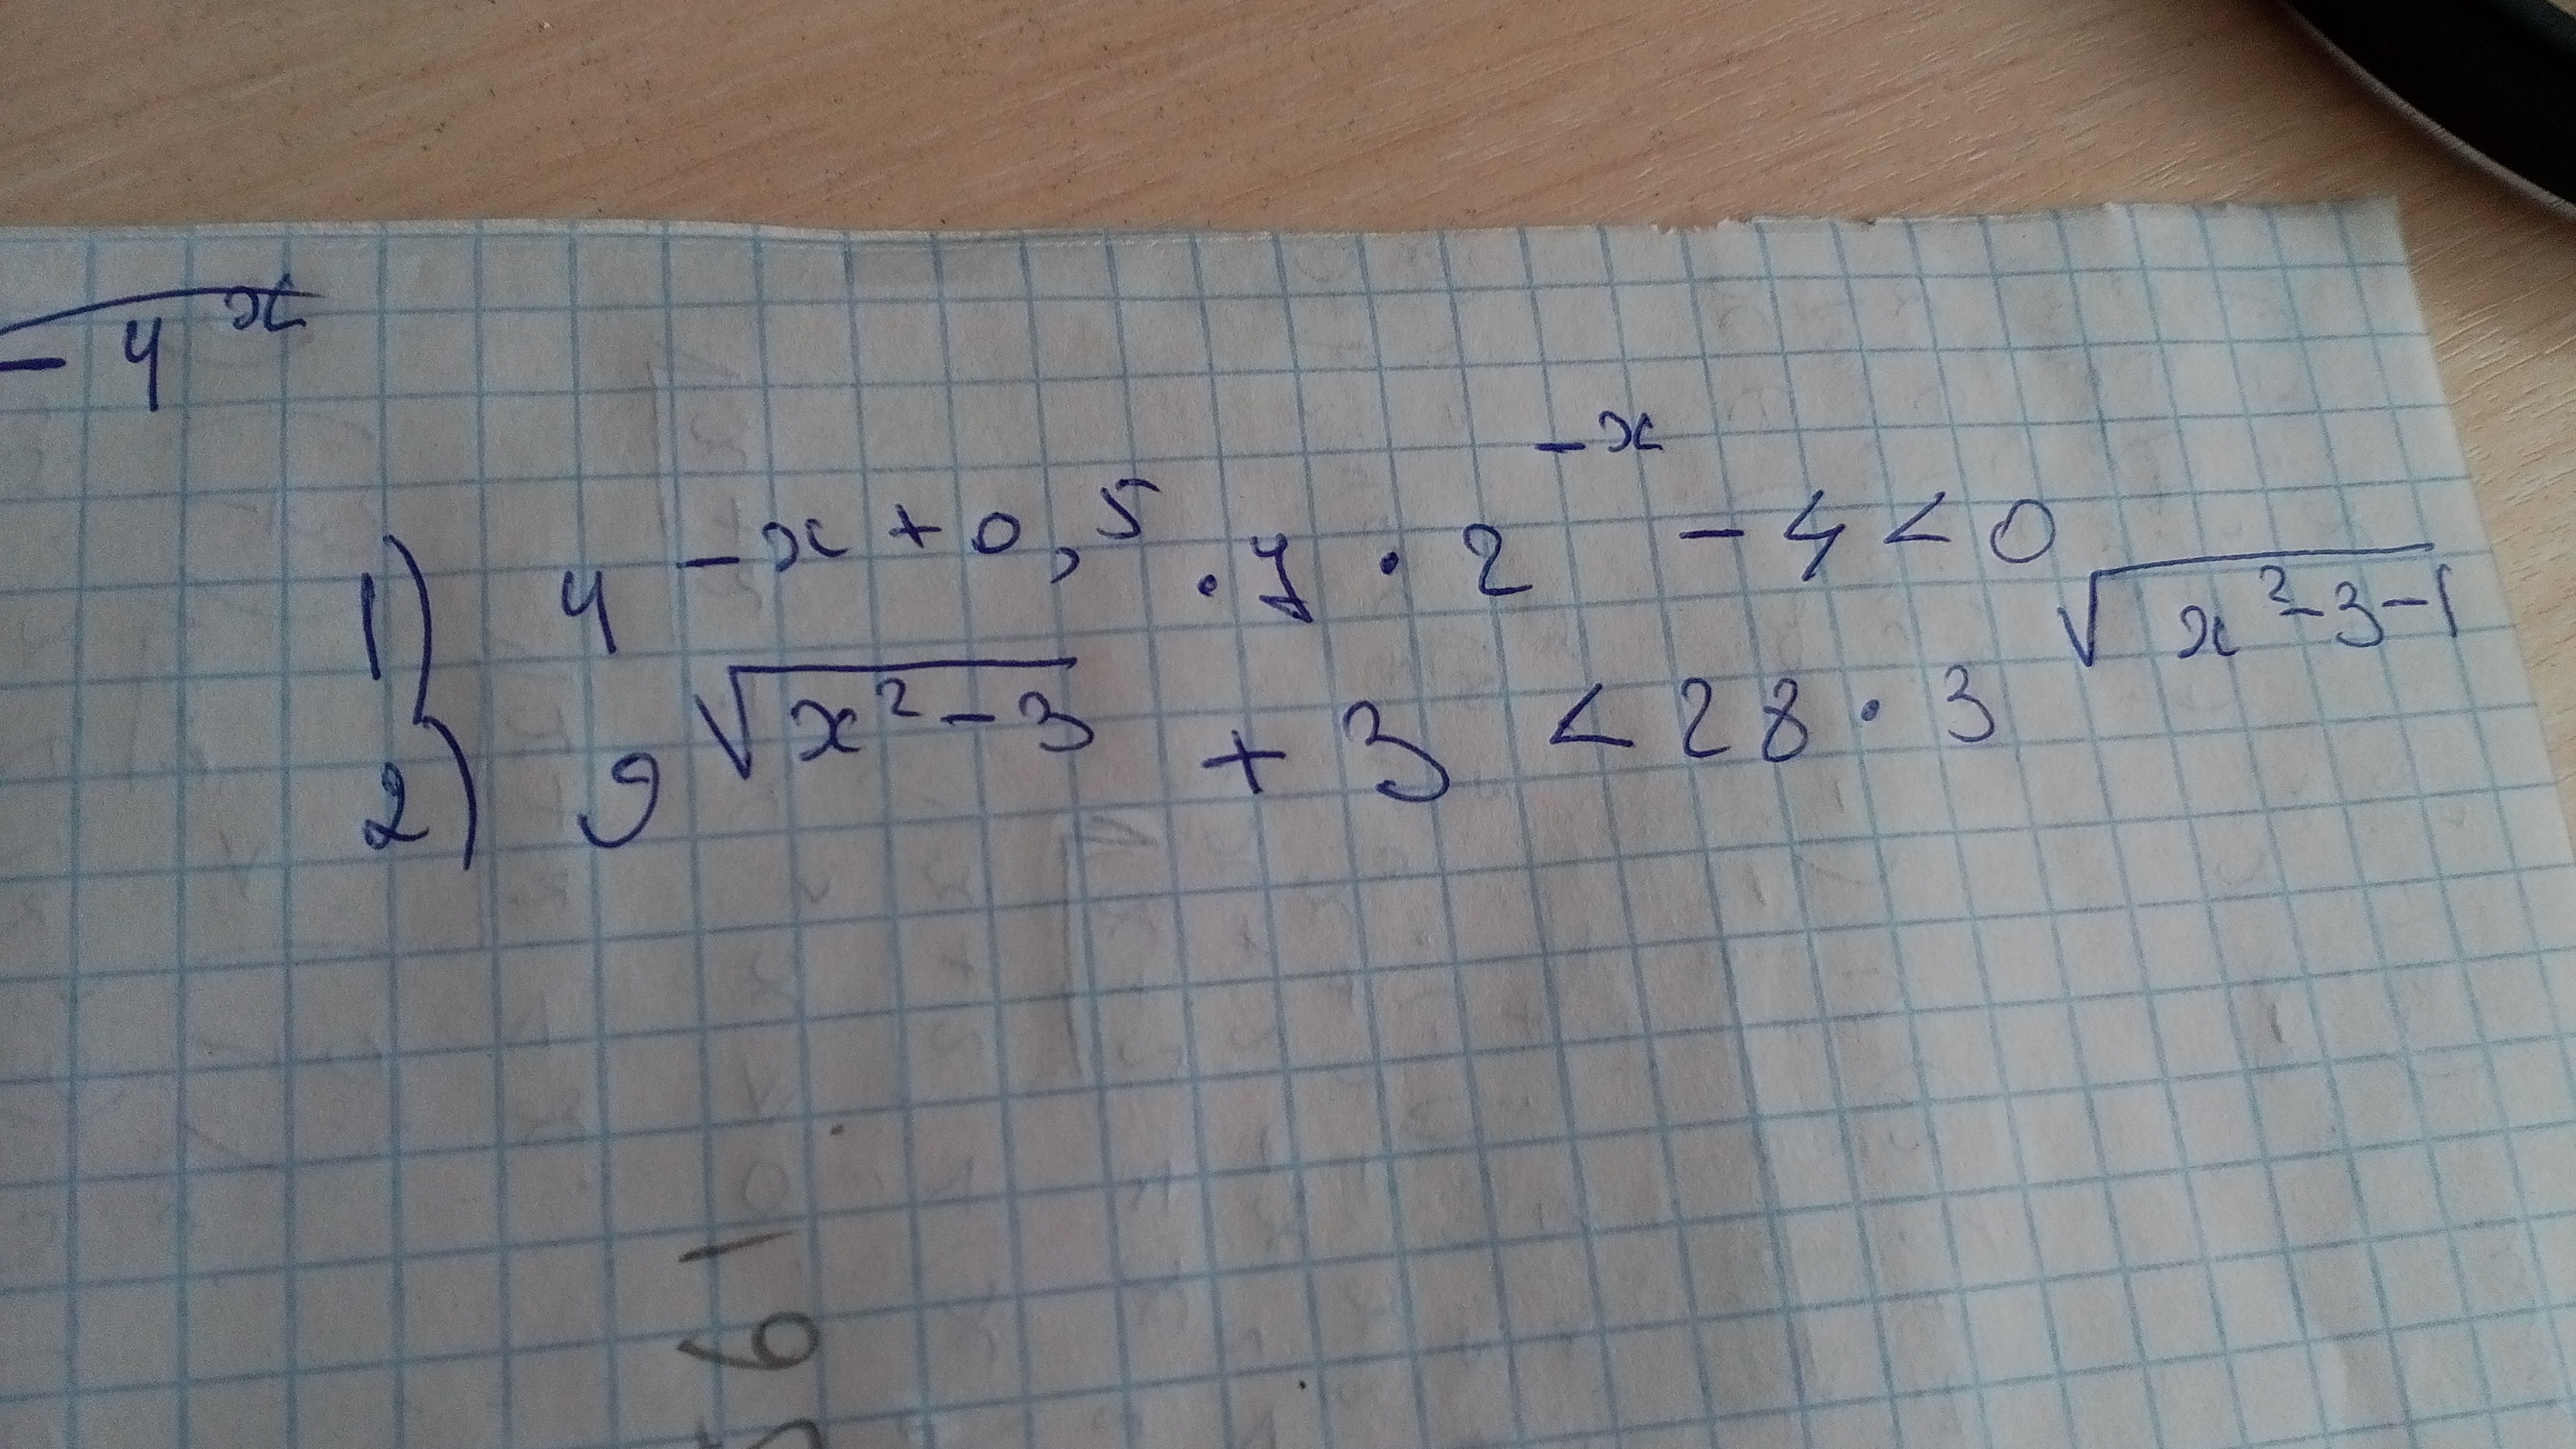 - 4^x
1) 4^{-x+0,5} · 7 · 2^{-x} - 4 < 0
2) 9^{√(x²-3)} + 3 < 28 · 3^{√(x²-3-1)}
561